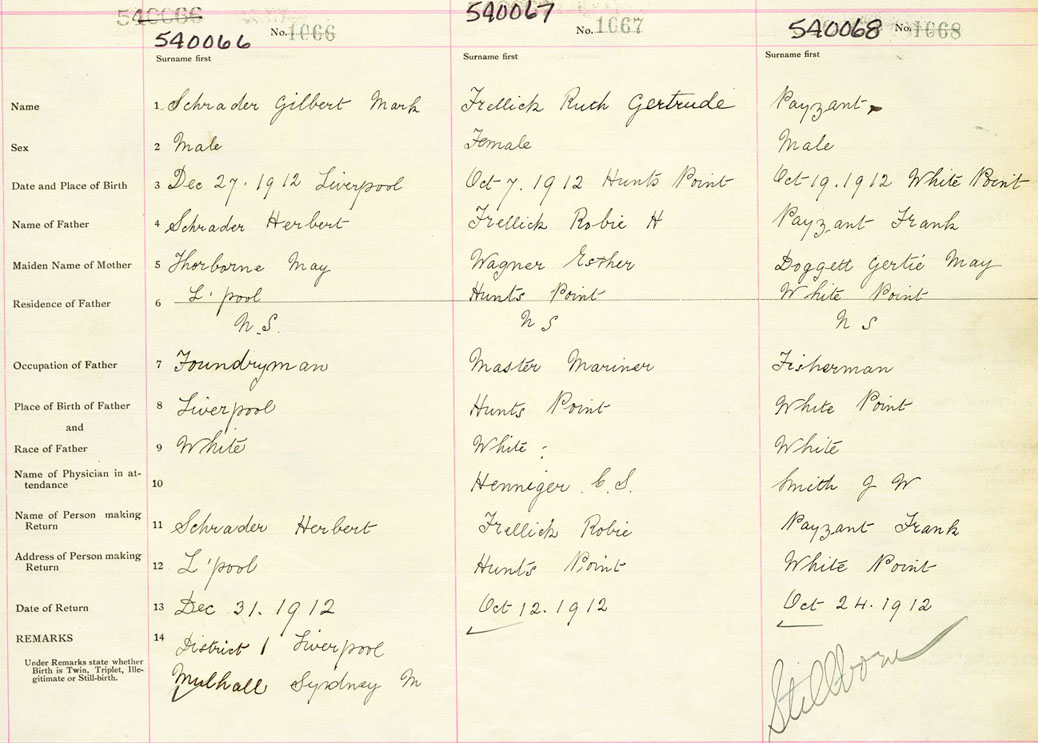 540066 540067 540068
540066 No. 1066 No. 1067 No. 1068
Surname first Surname first Surname first
Name 1 Schrader Gilbert Mark Frellick Ruth Gertrude Payzant
Sex 2 Male Female Male
Date and Place of Birth 3 Dec 27. 1912 Liverpool Oct 7. 1912 Hunts Point Oct 19. 1912 White Point
Name of Father 4 Schrader Herbert Frellick Robie H Payzant Frank
Maiden Name of Mother 5 Thorborne May Wagner Esther Doggett Gertie May
Residence of Father 6 L'pool Hunts Point White Point
N.S. N S N S
Occupation of Father 7 Foundryman Master Mariner Fisherman
Place of Birth of Father 8 Liverpool Hunts Point White Point
and
Race of Father 9 White White : White
Name of Physician in at-
tendance 10 Henniger C. S. Smith J W
Name of Person making
Return 11 Schrader Herbert Frellick Robie Payzant Frank
Address of Person making
Return 12 L'pool Hunts Point White Point
Date of Return 13 Dec 31. 1912 Oct 12. 1912 Oct 24. 1912
REMARKS 14 District 1 Liverpool
Under Remarks state whether
Birth is Twin, Triplet, Ille-
gitimate or Still-birth.
Mulhall Sysdney M
Stillborn